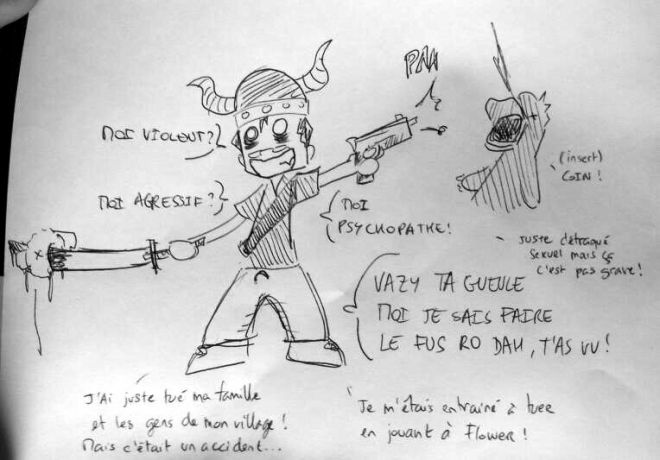 PAN
MOI VIOLENT?
(insert)
COIN!
MOI AGRESSIF?
MOI
PSYCHOPATHE!
juste détraqué
sexuel mais ça
c'est pas grave!
VAZY TA GUEULE
MOI JE SAIS FAIRE
LE FUS RO DAH, T'AS VU!
J'Ai juste tué ma famille
et les gens de mon village!
Mais c'était un accident...
Je m'étais entrainé à tuer
en jouant à Flower!